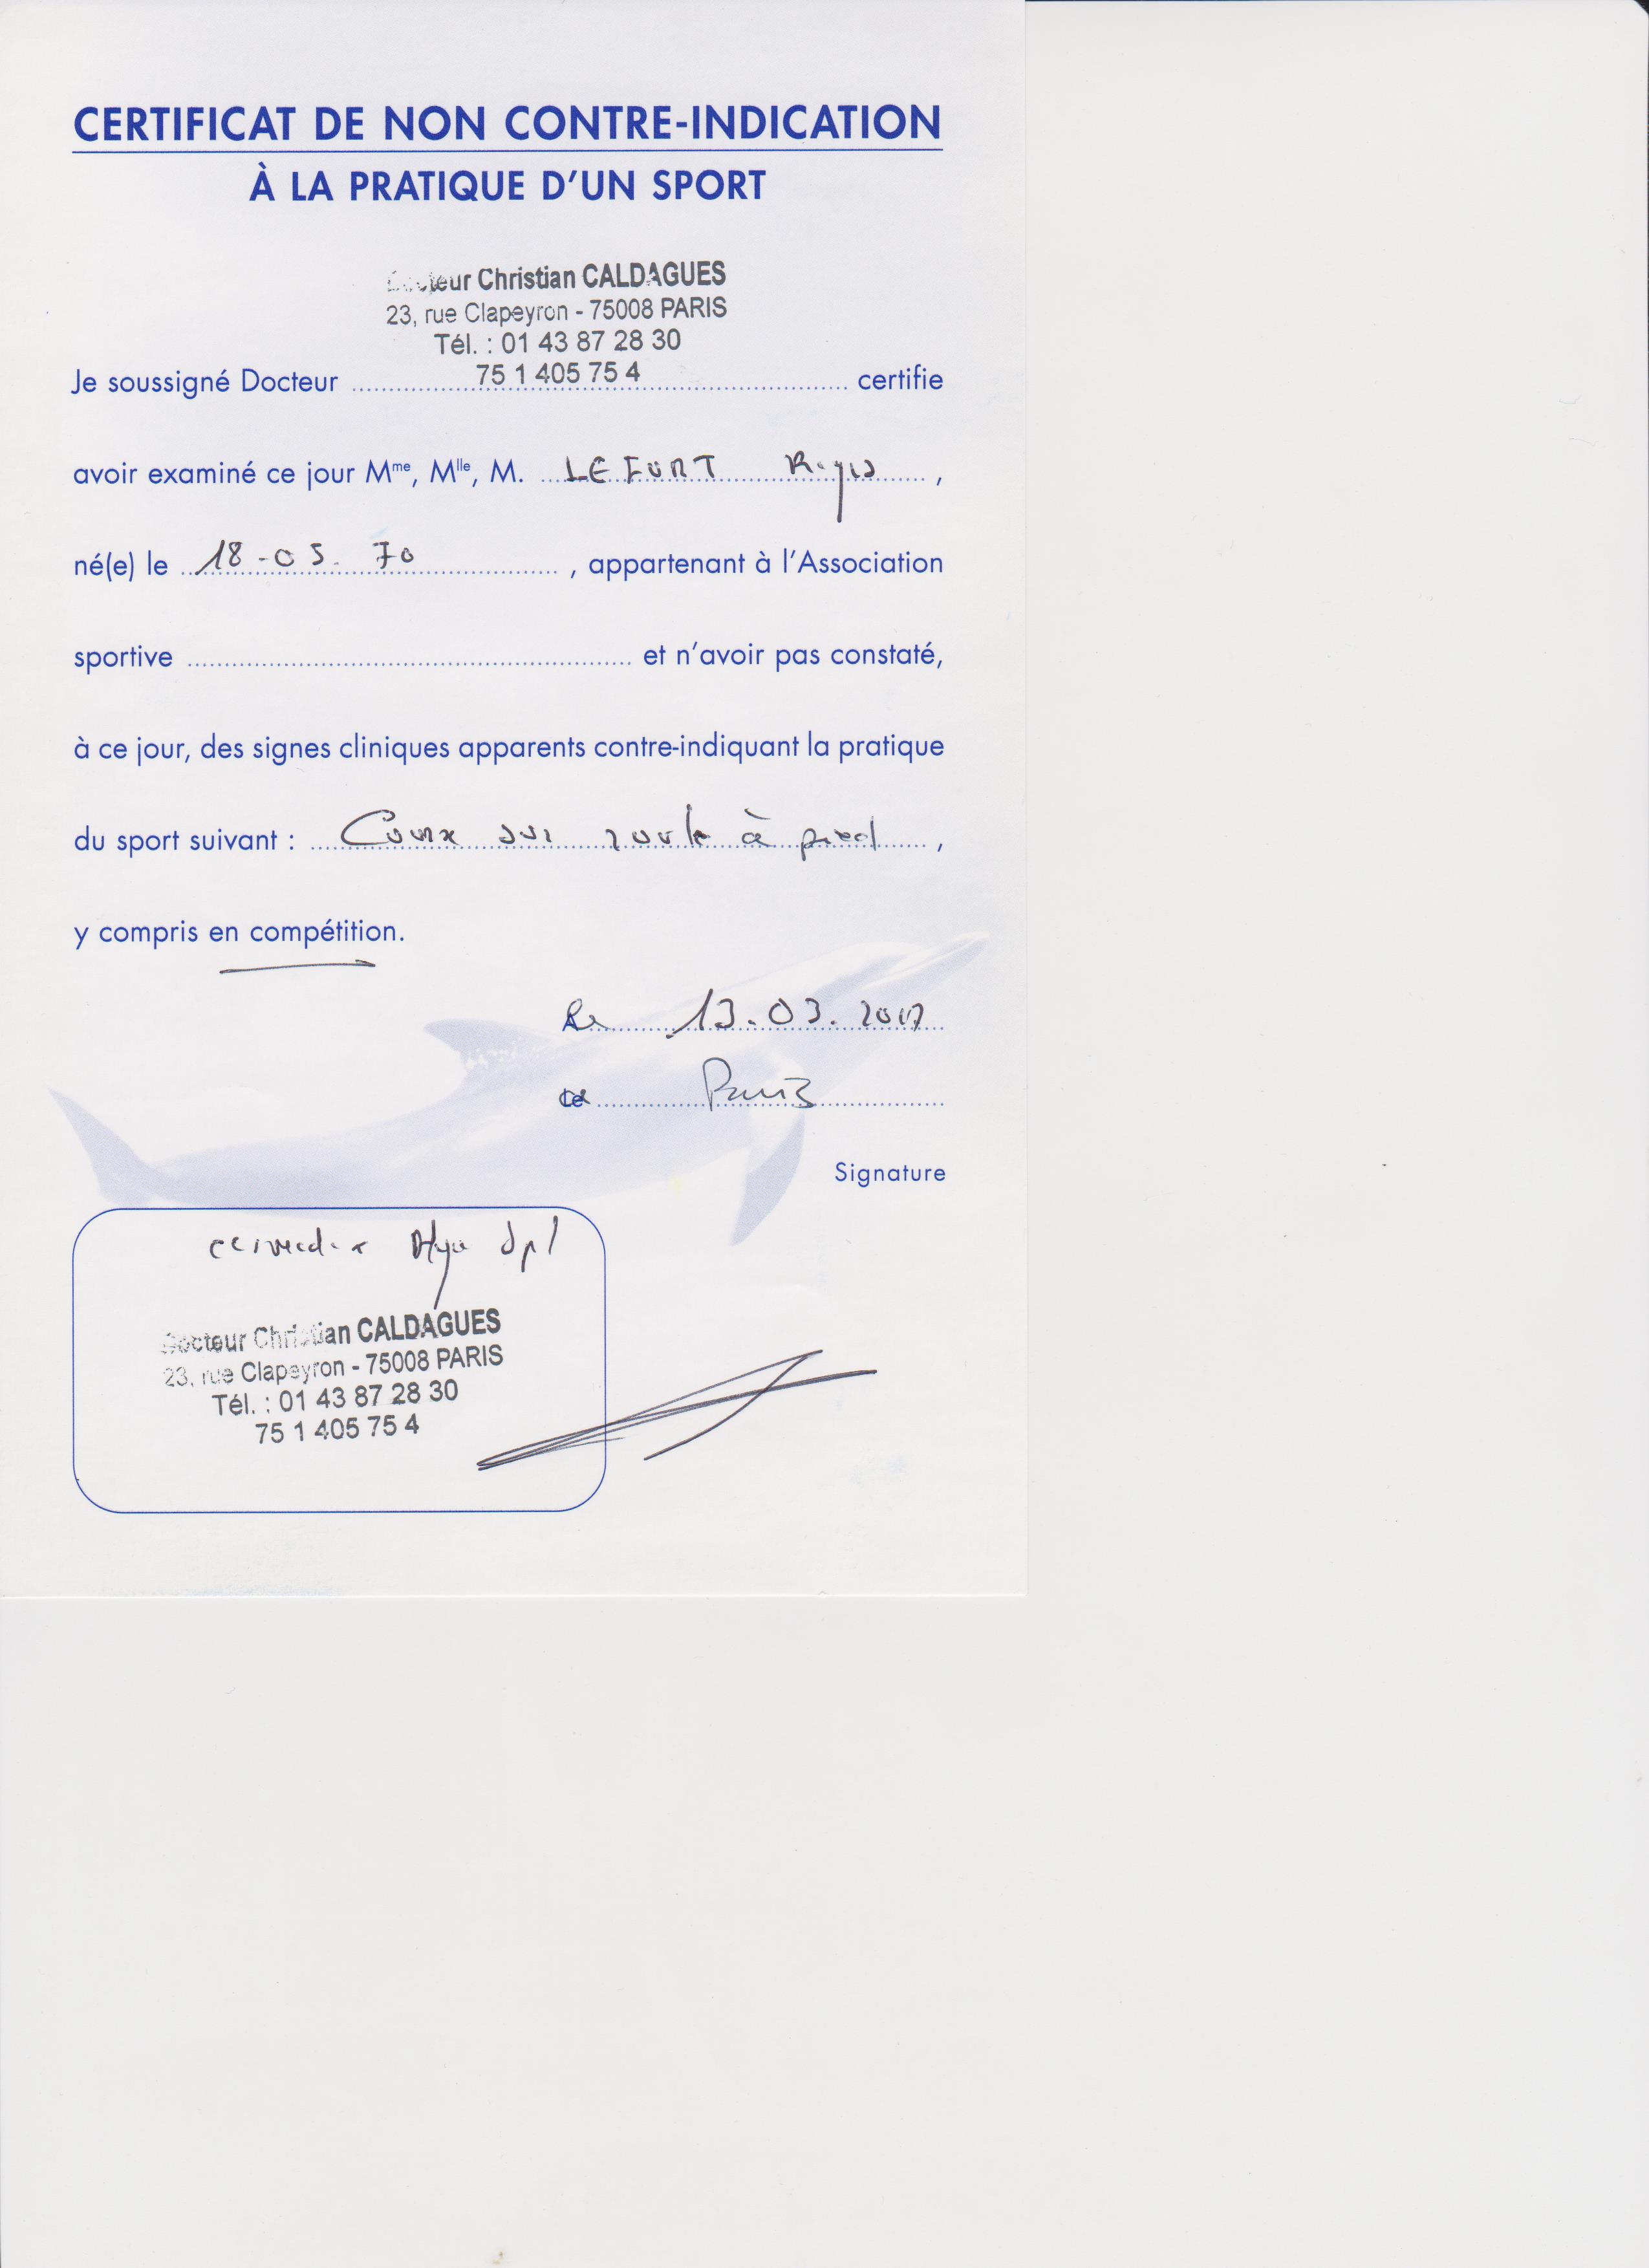 CERTIFICAT DE NON CONTRE-INDICATION
À LA PRATIQUE D'UN SPORT
Docteur Christian CALDAGUES
23, rue Clapeyron - 75008 PARIS
Tél. : 01 43 87 28 30
75 1 405 75 4
Je soussigné Docteur certifie
avoir examiné ce jour Mme, Mlle, M. LEFORT Régis,
né(e) le 18-05.70, appartenant à l'Association
sportive et n'avoir pas constaté,
à ce jour, des signes cliniques apparents contre-indiquant la pratique
du sport suivant : Course sur route à pied,
y compris en compétition.
Le 13.03.2017
Paris
Signature
Docteur Christian CALDAGUES
23, rue Clapeyron - 75008 PARIS
Tél. : 01 43 87 28 30
75 1 405 75 4